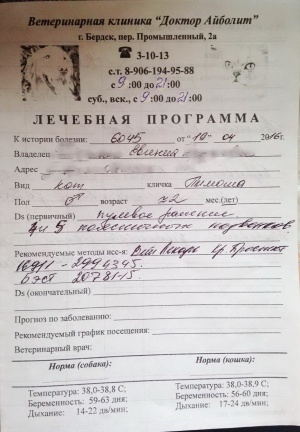 Ветеринарная клиника "Доктор Айболит"
г. Бердск, пер. Промышленный, 2а
3-10-13
с.т. 8-906-194-95-88
с 9:00 до 21:00
суб., вск., с 9:00 до 21:00
ЛЕЧЕБНАЯ ПРОГРАММА
К истории болезни: 6045 от "19" 04 2016г.
Владелец Евгений
Адрес
Вид кот кличка Тимоша
Пол ♂ возраст 72 мес.(лет)
Ds (первичный) Пулевое ранение
4 и 5 поясничных позвонков.
Рекомендуемые методы исс-я:
2994395.
2078115
Ds (окончательный)
Прогноз по заболеванию:
Рекомендуемый график посещения:
Ветеринарный врач:
Норма (собака): Норма (кошка):
Температура: 38,0-38,8 С; Температура: 38,0-38,9 С;
Беременность: 59-63 дня; Беременность: 56-60 дня;
Дыхание: 14-22 дв/мин; Дыхание: 17-24 дв/мин;